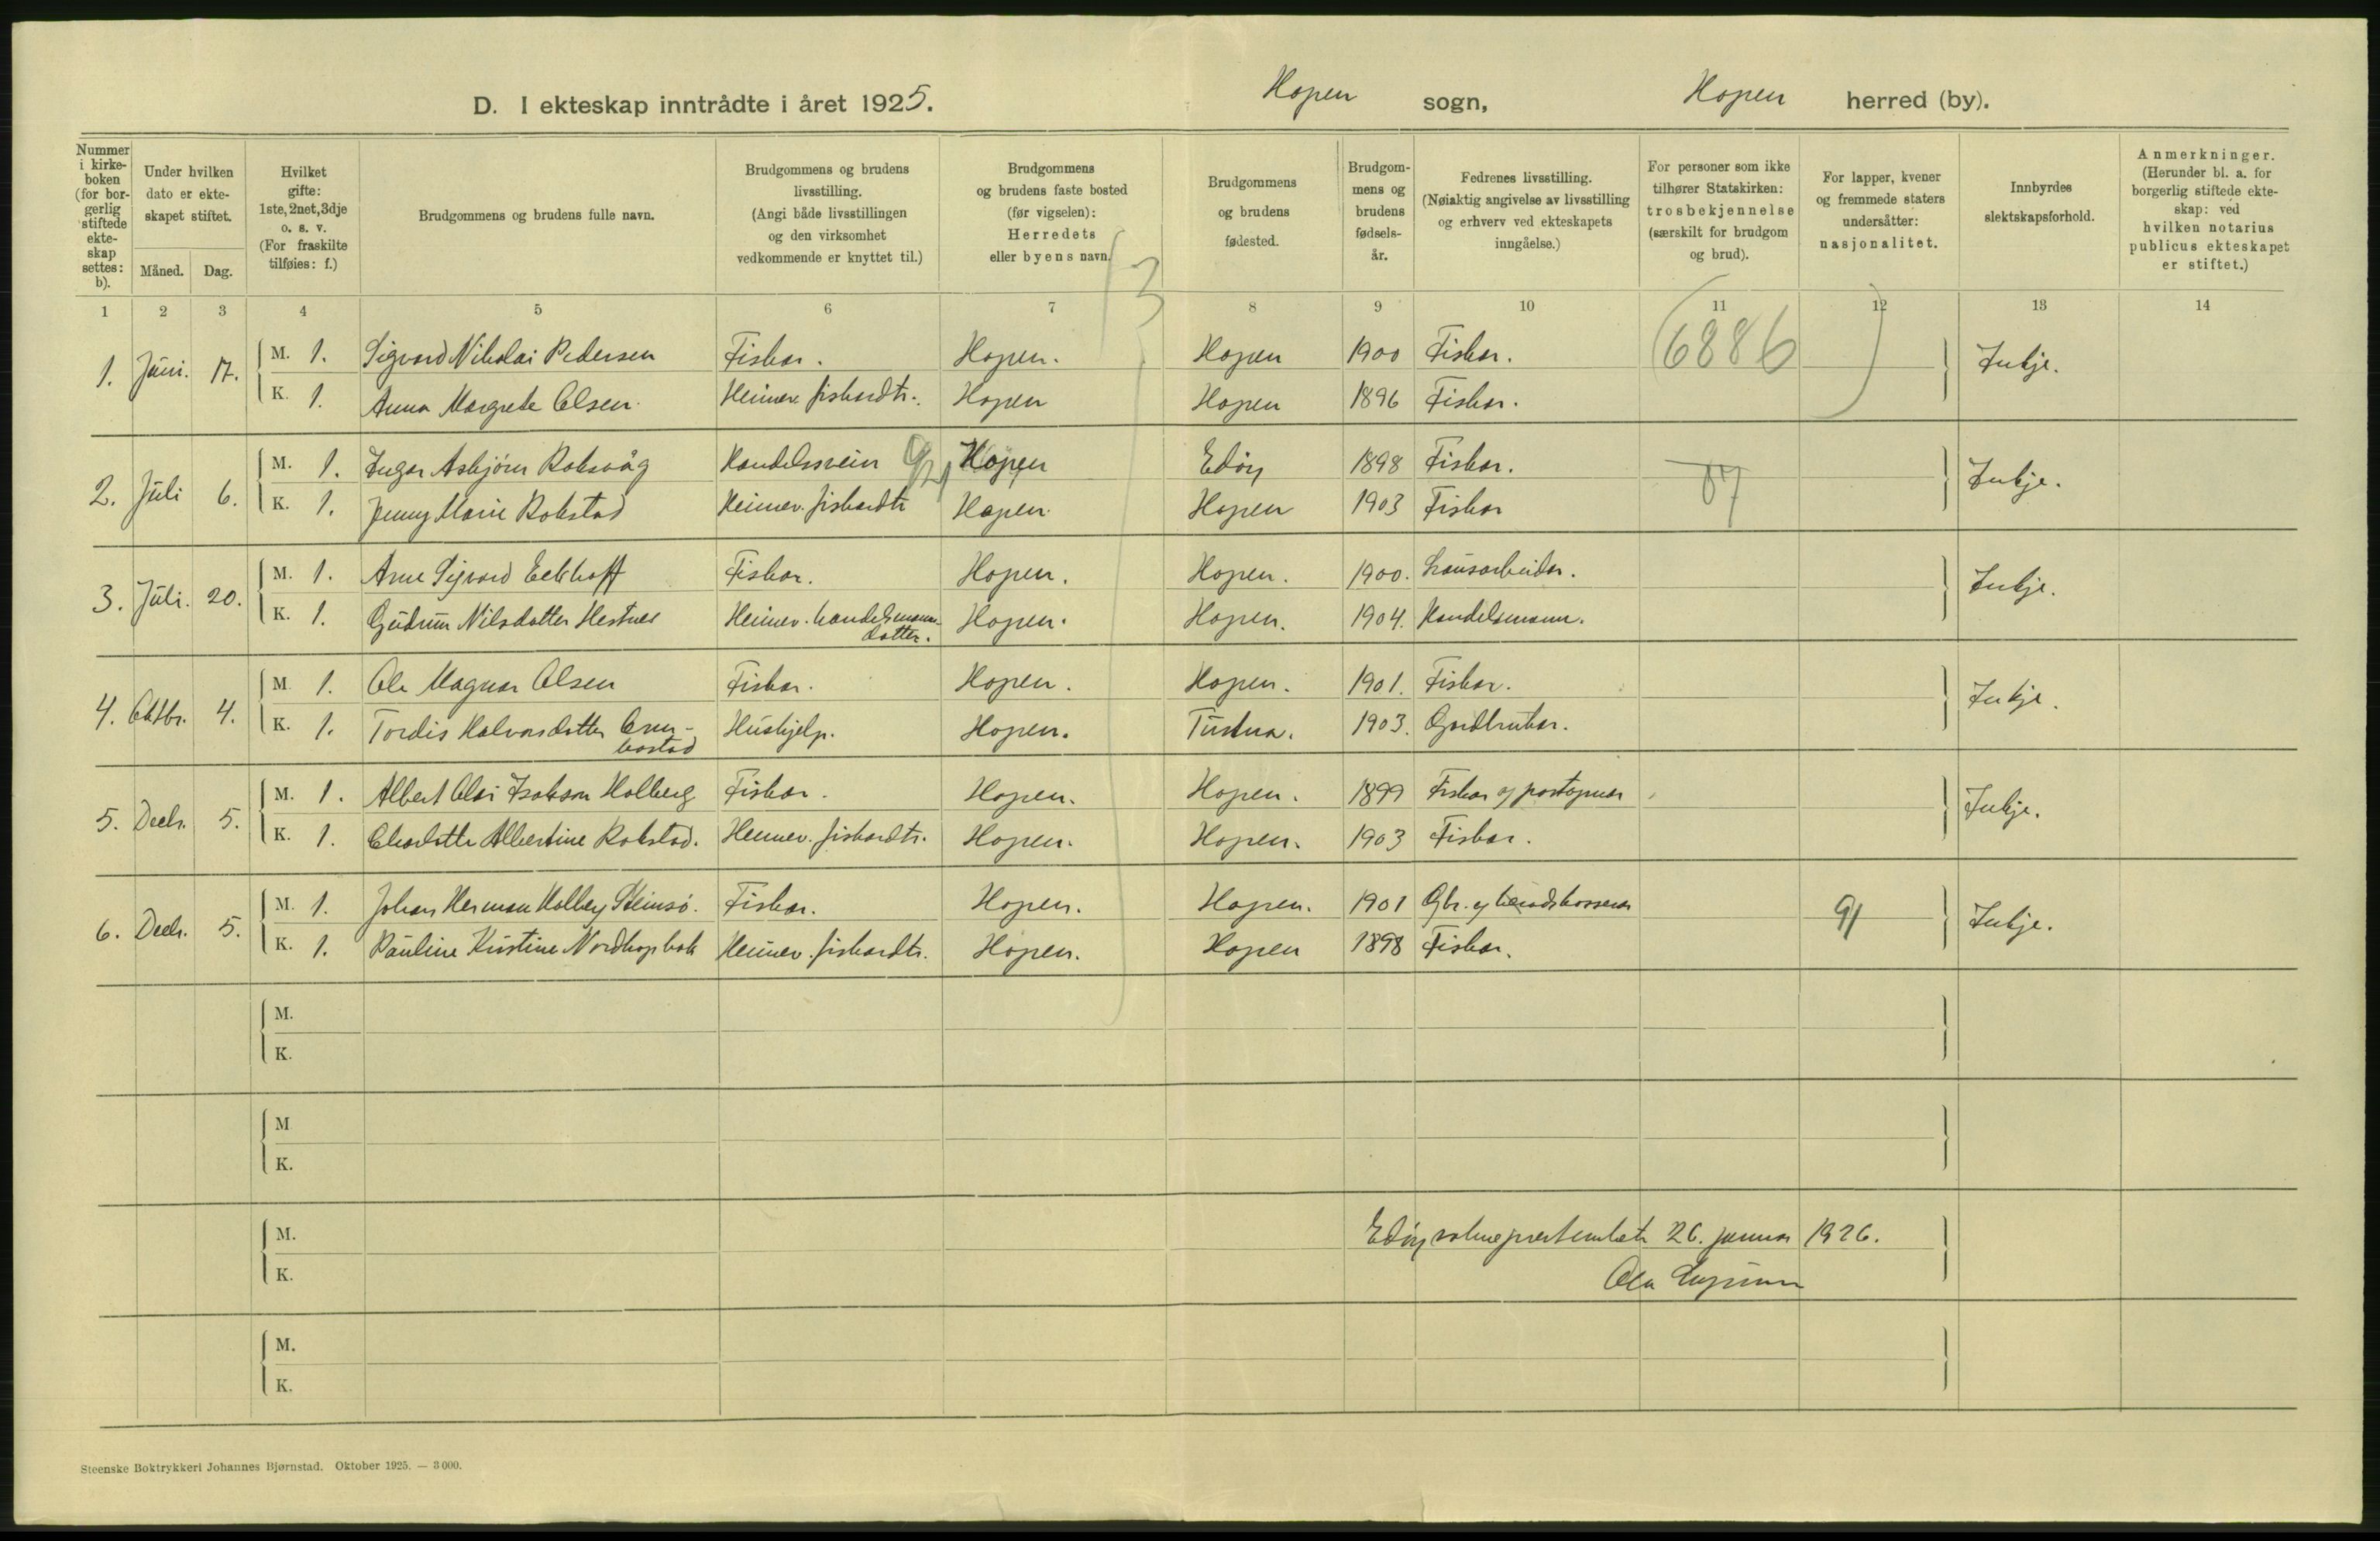 D. I ekteskap inntrådte i året 1925. Hopen sogn, Hopen herred (by).
Nummer i kirke-boken (for bor-gerlig stiftede ekte-skap settes: b).
Under hvilken dato er ekte-skapet stiftet.
Måned. Dag.
Hvilket gifte: 1ste, 2net, 3dje o. s. v. (For fraskilte tilføies: f.)
Brudgommens og brudens fulle navn.
Brudgommens og brudens livsstilling. (Angi både livsstillingen og den virksomhet vedkommende er knyttet til.)
Brudgommens og brudens faste bosted (før vigselen): Herredets eller byens navn.
Brudgommens og brudens fødested.
Brudgom-mens og brudens fødsels-år.
Fedrenes livsstilling. (Nøiaktig angivelse av livsstilling og erhverv ved ekteskapets inngåelse.)
For personer som ikke tilhører Statskirken: trosbekjennelse (særskilt for brudgom og brud).
For lapper, kvener og fremmede staters undersåtter: nasjonalitet.
Innbyrdes slektskapsforhold.
Anmerkninger. (Herunder bl. a. for borgerlig stiftede ekte-skap: ved hvilken notarius publicus ekteskapet er stiftet.)
3
1 2 3 4 5 6 7 8 9 10 11 12 13 14
1. Juni. 17. M. 1. Sigvard Nikolai Pedersen Fisker. Hopen. Hopen 1900 Fisker. (6886) Inkje.
K. 1. Anna Margrete Olsen. Heimev. fiskardtr. Hopen Hopen 1896 Fisker.
2. Juli 6. M. 1. Ingar Asbjørn Roksvåg Handelssvein 9/21 Hopen Edøy 1898 Fisker. 87 Inkje.
K. 1. Jenny Marie Rokstad Heimev. fiskardtr Hopen Hopen 1903 Fisker
3. Juli. 20. M. 1. Arne Sigvard Eckhoff Fisker. Hopen. Hopen. 1900. Lausarbeider. Inkje.
K. 1. Gudrun Nilsdotter Hestnes Heimev. handelsmann-dotter. Hopen. Hopen. 1904. Handelsmann.
4. Oktbr. 4. M. 1. Ole Magnar Olsen Fisker. Hopen. Hopen. 1901. Fisker. Inkje.
K. 1. Tordis Halvorsdotter Hushjelp. Hopen. Tustna. 1903. Gardbruker.
5. Decbr. 5. M. 1. Albert Olai Isaksen Holberg Fisker. Hopen. Hopen. 1899 Fisker og postopnar Inkje.
K. 1. Charlotte Albertine Rokstad. Heimev. fiskardtr. Hopen. Hopen. 1903 Fisker.
6. Decbr. 5. M. 1. Johan Herman Holberg Steinsø. Fisker. Hopen. Hopen. 1901 Gbr. og heradskasserar 91 Inkje.
K. 1. Pauline Kristine Nordhopbak Heimev. fiskardtr. Hopen. Hopen 1898 Fisker.
M.
K.
M
K.
M.
Edøy sokneprestembæte 26. januar 1926.
K.
Ola
M.
K.
Steenske Boktrykkeri Johannes Bjørnstad. Oktober 1925. — 3000.